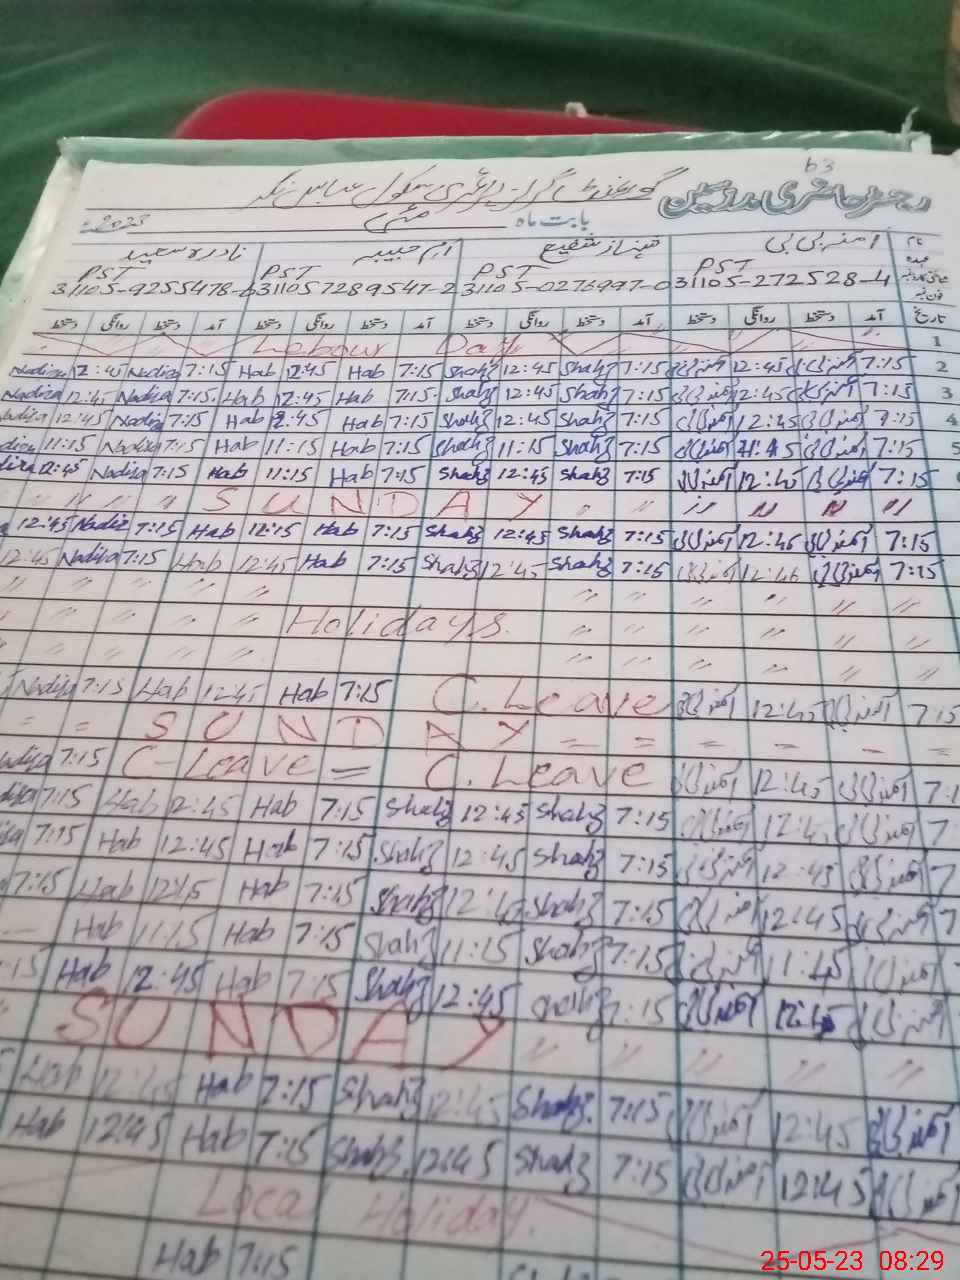 63
گورنمنٹ گرلز پرائمری سکول عباس نگر
رجسٹر حاضری مدرسین
بابت ماہ مئی 2023ء
نام آمنہ بی بی شہناز شفیع ام حبیبہ نادرہ سعید
عہدہ PST PST PST PST
31105-272528-4 31105-0276997-0 311057289547-2 31105-9255478-6
تاریخ آمد دستخط روانگی دستخط آمد دستخط روانگی دستخط آمد دستخط روانگی دستخط آمد دستخط روانگی دستخط
Labour Day 1
Nadira 12:45 Nadira 7:15 Hab 12:45 Hab 7:15 Shahz 12:45 Shahz 7:15 آمنہ بی بی 12:45 آمنہ بی بی 7:15 2
Nadira 12:45 Nadira 7:15 Hab 12:45 Hab 7:15 Shahz 12:45 Shahz 7:15 آمنہ بی بی 12:45 آمنہ بی بی 7:15 3
Nadira 12:45 Nadira 7:15 Hab 12:45 Hab 7:15 Shahz 12:45 Shahz 7:15 آمنہ بی بی 12:45 آمنہ بی بی 7:15 4
11:15 Nadira 7:15 Hab 11:15 Hab 7:15 Shahz 11:15 Shahz 7:15 آمنہ بی بی 11:45 آمنہ بی بی 7:15 5
12:45 Nadira 7:15 Hab 11:15 Hab 7:15 Shahz 12:45 Shahz 7:15 آمنہ بی بی 12:45 آمنہ بی بی 7:15
SUNDAY
12:45 Nadira 7:15 Hab 12:15 Hab 7:15 Shahz 12:45 Shahz 7:15 آمنہ بی بی 12:45 آمنہ بی بی 7:15
12:45 Nadira 7:15 Hab 12:45 Hab 7:15 Shahz 12:45 Shahz 7:15 آمنہ بی بی 12:46 آمنہ بی بی 7:15
Holidays.
Nadira 7:15 Hab 12:45 Hab 7:15 C. Leave آمنہ بی بی 12:45 آمنہ بی بی 7:15
SUNDAY
7:15 C-Leave = C. Leave آمنہ بی بی 12:45 آمنہ بی بی
7:15 Hab 12:45 Hab 7:15 Shahz 12:45 Shahz 7:15 آمنہ بی بی آمنہ بی بی
7:15 Hab 12:45 Hab 7:15 Shahz 12:45 Shahz 7:15 آمنہ بی بی 12:45 آمنہ بی بی
7:15 Hab 12:15 Hab 7:15 Shahz 12:45 Shahz 7:15 آمنہ بی بی 12:45 آمنہ بی بی
Hab 11:15 Hab 7:15 Shahz 11:15 Shahz 7:15 آمنہ بی بی 11:45 آمنہ بی بی
Hab 12:45 Hab 7:15 Shahz 12:45 Shahz 7:15 آمنہ بی بی 12:45 آمنہ بی بی
SUNDAY
Hab 12:45 Hab 7:15 Shahz 12:45 Shahz 7:15 آمنہ بی بی 12:45 آمنہ بی بی
Hab 12:45 Hab 7:15 Shahz 12:45 Shahz 7:15 آمنہ بی بی 12:45 آمنہ بی بی
Local Holiday.
Hab 7:15
25-05-23 08:29